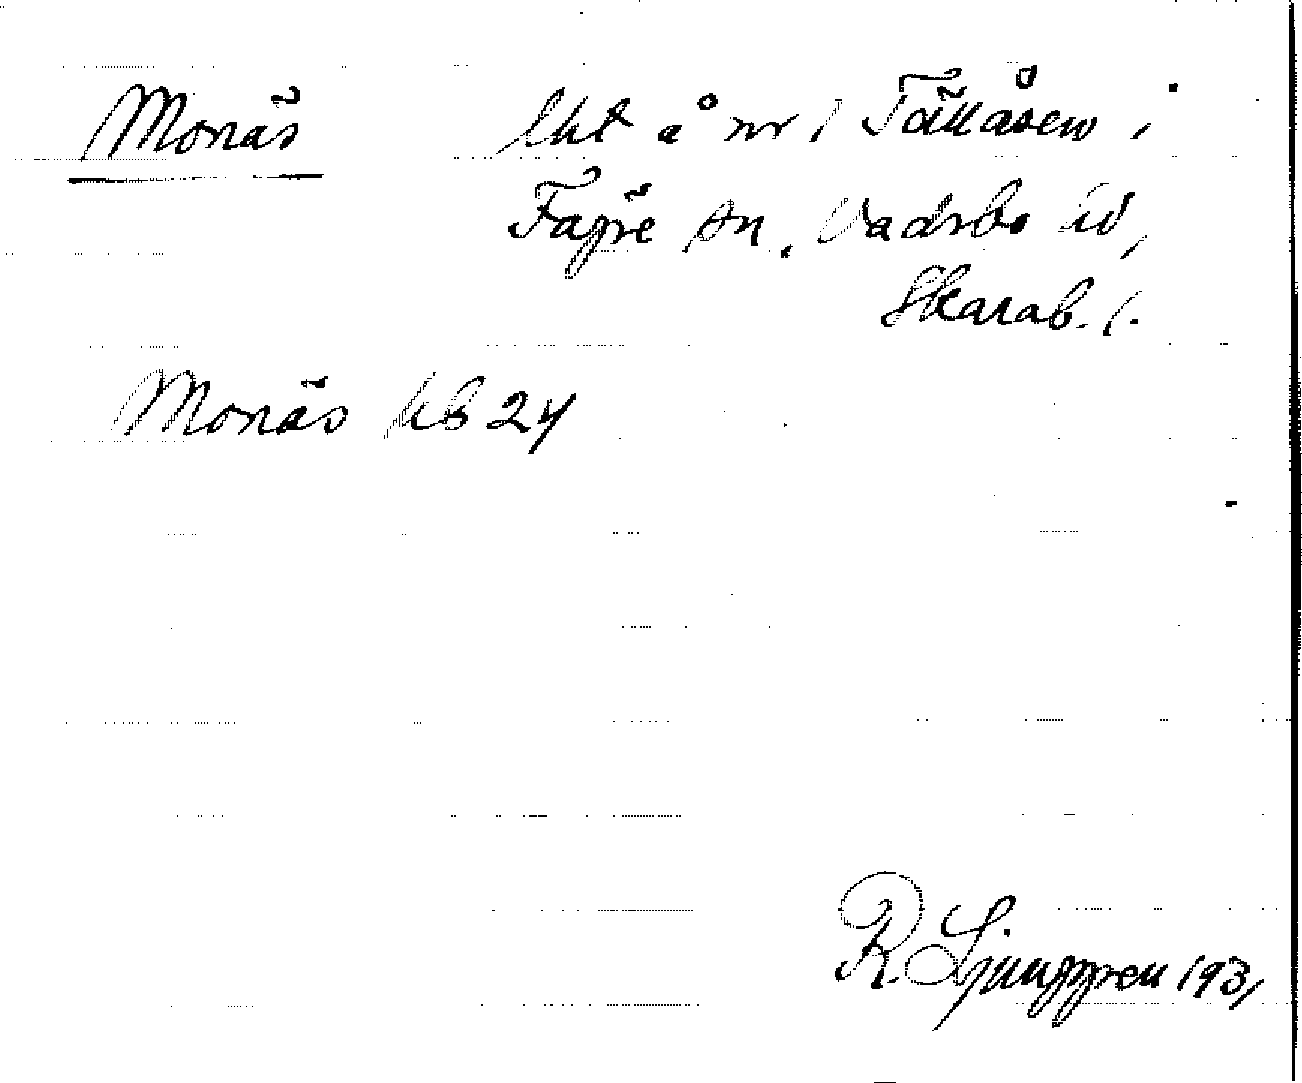 Monäs lht å nr 1 Tällåsen i
Fägre sn, Vadsbo hd,
Skarab. l.
Monäs kb 24
R. Ljunggren 1931